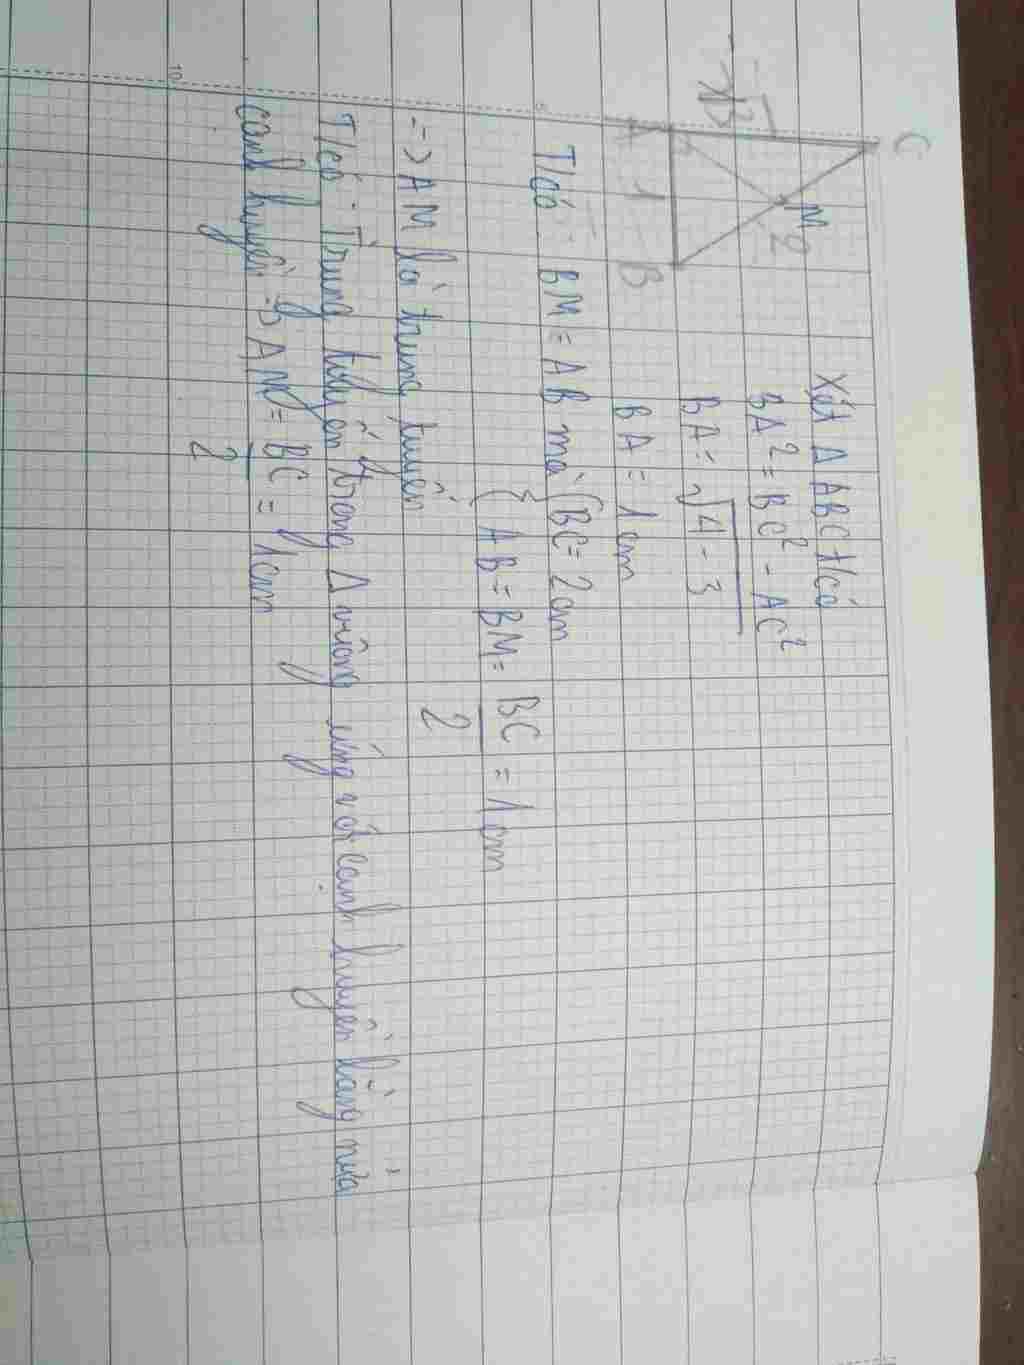 C
M
2
√3
A 1 B
Xét Δ ABC t/có
BA² = BC² - AC²
BA = √4-3
BA = 1cm
T/có: BM = AB mà { BC = 2cm
AB = BM = BC/2 = 1cm
=> AM là trung tuyến
T/có: Trung tuyến trong Δ vuông ứng với cạnh huyền bằng nửa
cạnh huyền => AM = BC/2 = 1cm
10